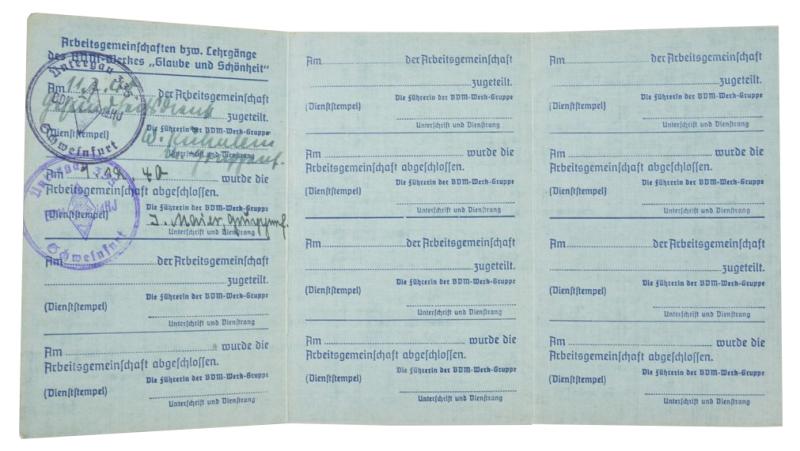 Arbeitsgemeinschaften bzw. Lehrgänge
des BDM-Werkes „Glaube und Schönheit"
Untergau
Schweinfurt
Am 11. der Arbeitsgemeinschaft
Gesundheitsdienst zugeteilt.
(Dienststempel)
Am 40 wurde die
Arbeitsgemeinschaft abgeschlossen.
(Dienststempel) J. Maier, Gruppenf.
Unterschrift und Dienstrang
Untergau
Schweinfurt
Am der Arbeitsgemeinschaft
zugeteilt.
Die Führerin der BDM-Werk-Gruppe
(Dienststempel)
Unterschrift und Dienstrang
Am wurde die
Arbeitsgemeinschaft abgeschlossen.
Die Führerin der BDM-Werk-Gruppe
(Dienststempel)
Unterschrift und Dienstrang
Am der Arbeitsgemeinschaft
zugeteilt.
Die Führerin der BDM-Werk-Gruppe
(Dienststempel)
Unterschrift und Dienstrang
Am wurde die
Arbeitsgemeinschaft abgeschlossen.
Die Führerin der BDM-Werk-Gruppe
(Dienststempel)
Unterschrift und Dienstrang
Am der Arbeitsgemeinschaft
zugeteilt.
Die Führerin der BDM-Werk-Gruppe
(Dienststempel)
Unterschrift und Dienstrang
Am wurde die
Arbeitsgemeinschaft abgeschlossen.
Die Führerin der BDM-Werk-Gruppe
(Dienststempel)
Unterschrift und Dienstrang
Am der Arbeitsgemeinschaft
zugeteilt.
Die Führerin der BDM-Werk-Gruppe
(Dienststempel)
Unterschrift und Dienstrang
Am wurde die
Arbeitsgemeinschaft abgeschlossen.
Die Führerin der BDM-Werk-Gruppe
(Dienststempel)
Unterschrift und Dienstrang
Am der Arbeitsgemeinschaft
zugeteilt.
Die Führerin der BDM-Werk-Gruppe
(Dienststempel)
Unterschrift und Dienstrang
Am wurde die
Arbeitsgemeinschaft abgeschlossen.
Die Führerin der BDM-Werk-Gruppe
(Dienststempel)
Unterschrift und Dienstrang